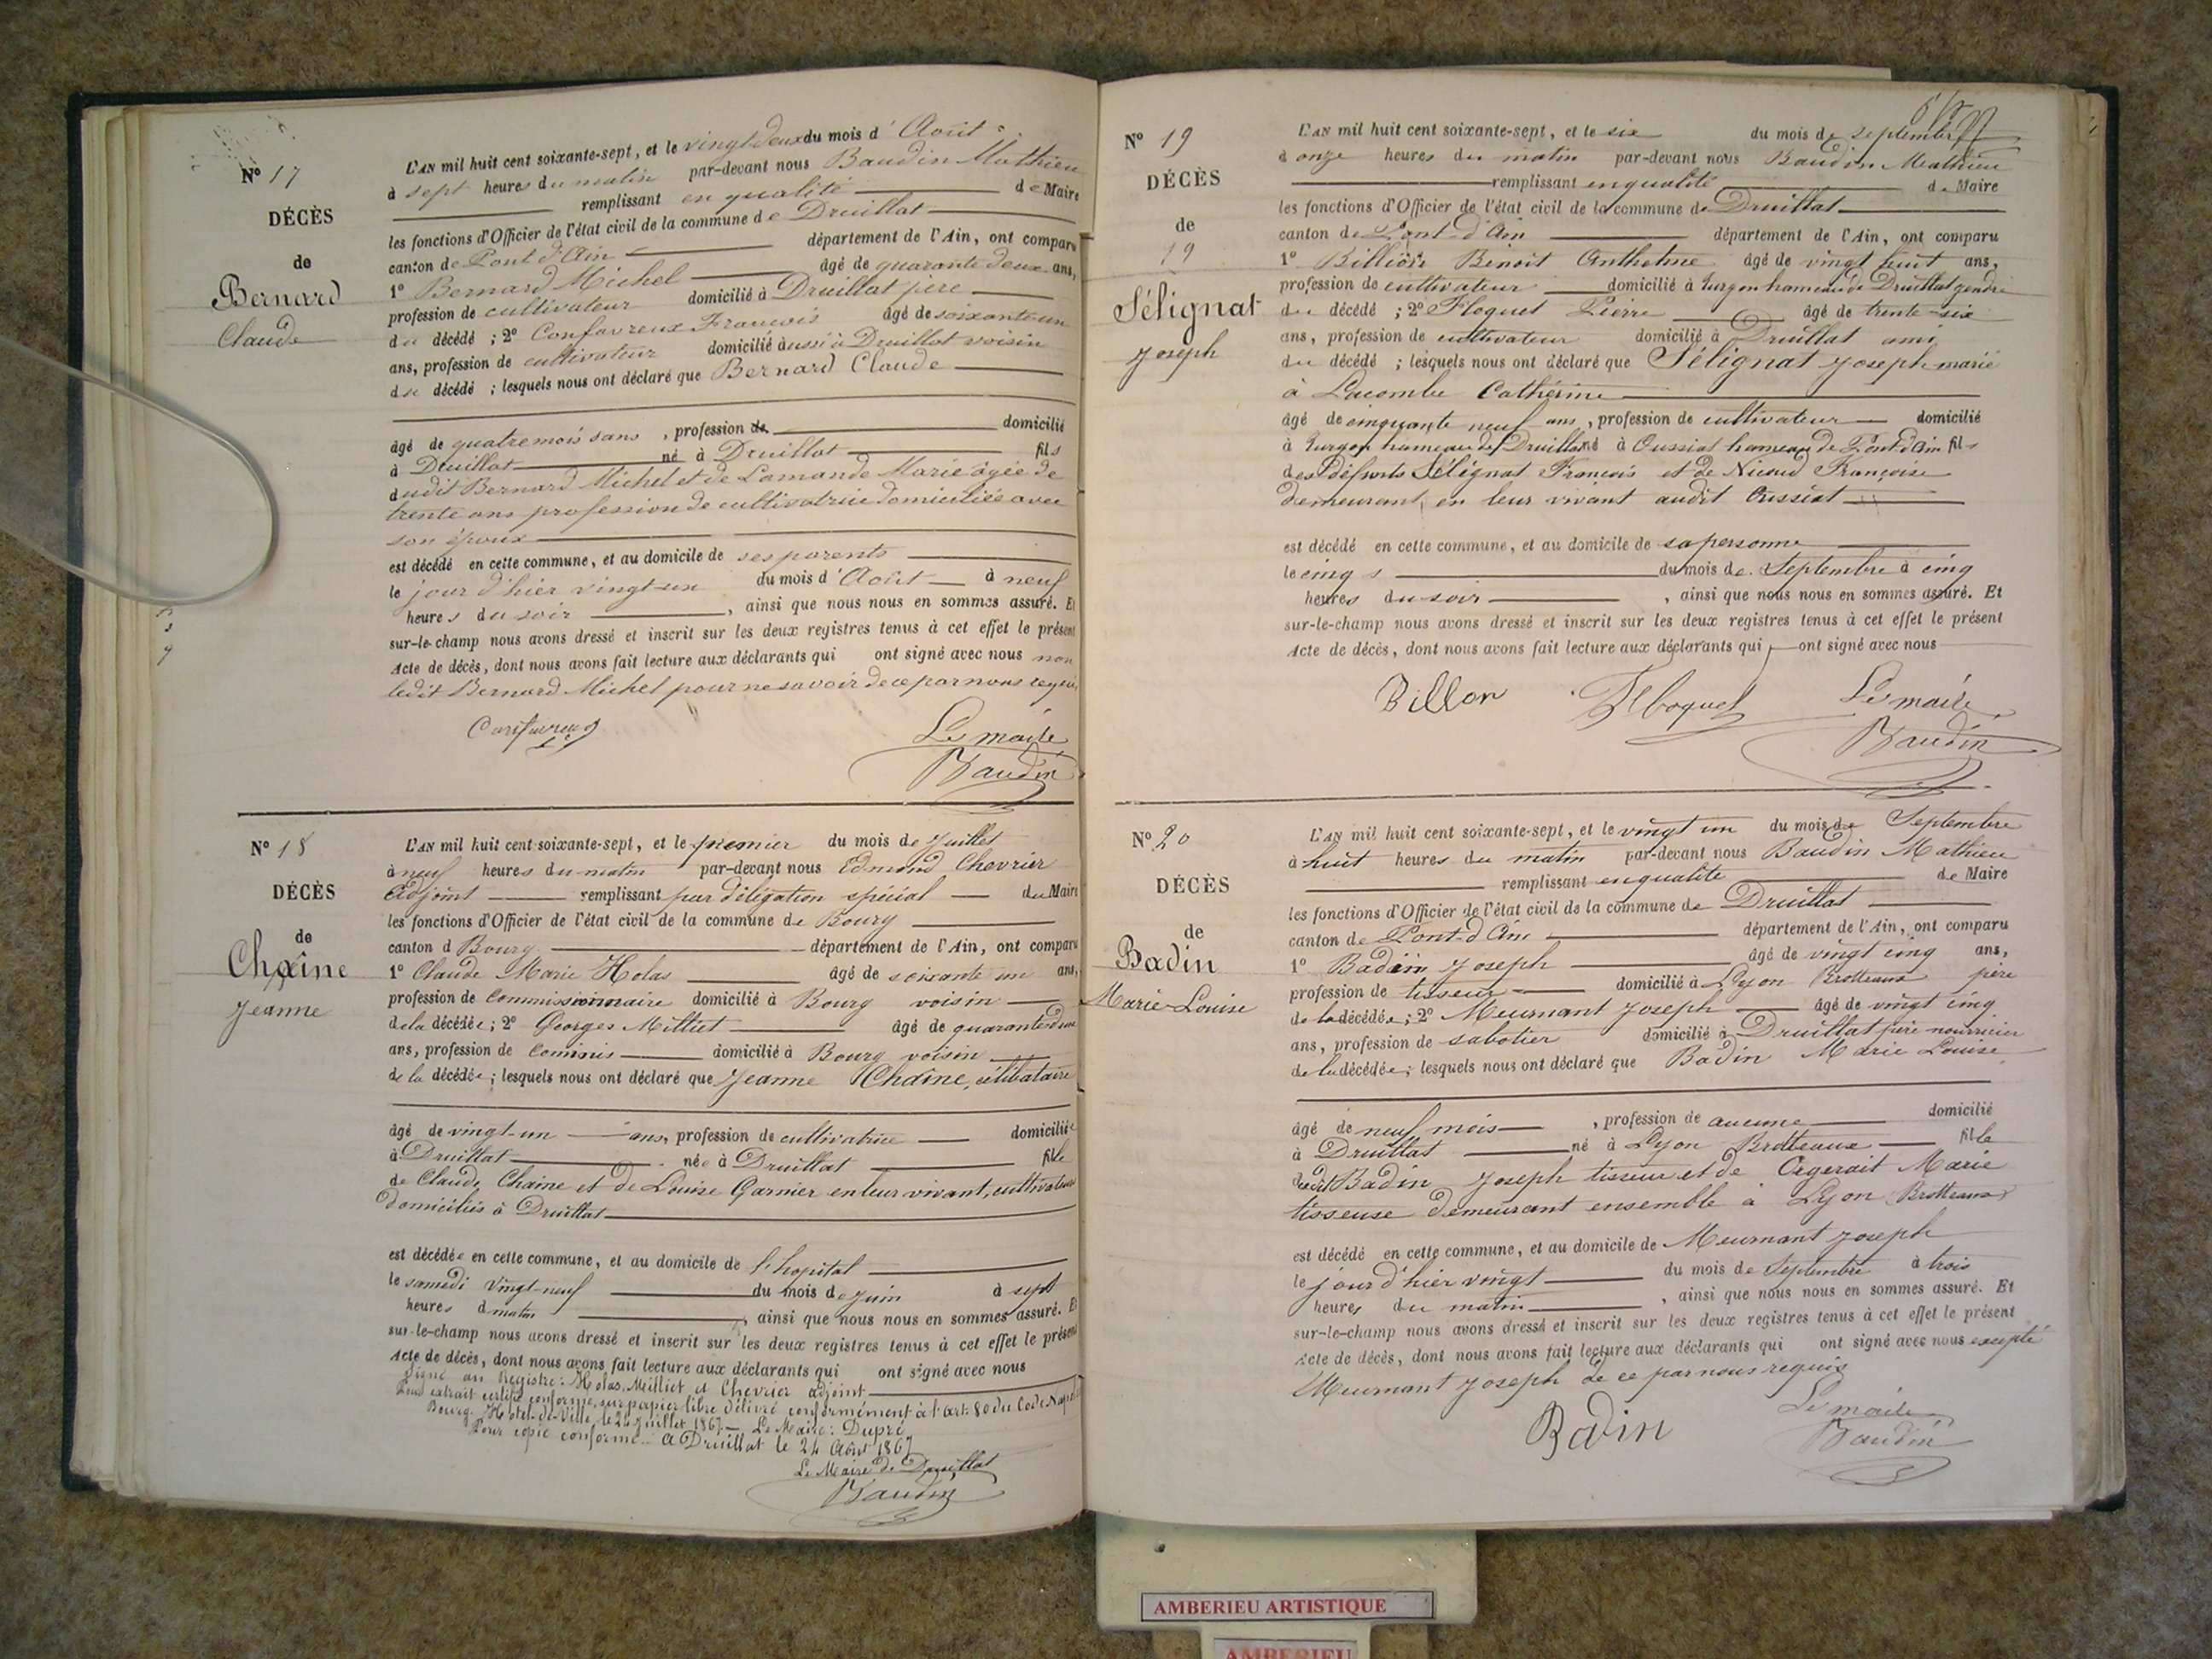 Nº 17
DÉCÈS
de
Bernard
Claude
L'AN mil huit cent soixante-sept, et le vingt deux du mois d'Août
à sept heures du matin par-devant nous Baudin Mathieu
remplissant en qualité de Maire
les fonctions d'Officier de l'état civil de la commune de Druillat
canton de Pont d'Ain département de l'Ain, ont comparu
1º Bernard Michel âgé de quarante deux ans,
profession de cultivateur domicilié à Druillat père
du décédé ; 2º Confavreux Francois âgé de soixante un
ans, profession de cultivateur domicilié aussi à Druillat voisin
du décédé ; lesquels nous ont déclaré que Bernard Claude
âgé de quatre mois sans , profession de domicilié
à Druillat né à Druillat fils
dudit Bernard Michel et de Lamande Marie âgée de
trente ans profession de cultivatrice domiciliée avec
son époux
est décédé en cette commune, et au domicile de ses parents
le jour d'hier vingt-un du mois d'Août à neuf
heures du soir , ainsi que nous nous en sommes assuré. Et
sur-le-champ nous avons dressé et inscrit sur les deux registres tenus à cet effet le présent
Acte de décès, dont nous avons fait lecture aux déclarants qui ont signé avec nous non
ledit Bernard Michel pour ne savoir de ce par nous requis
Confavreux
Le maire
Baudin
Nº 18
DÉCÈS
de
Chaîne
Jeanne
L'AN mil huit cent soixante-sept, et le premier du mois de Juillet
à neuf heures du matin par-devant nous Edmond Chevrier
Adjoint remplissant par délégation spécial du Maire
les fonctions d'Officier de l'état civil de la commune de Bourg
canton d Bourg département de l'Ain, ont comparu
1º Claude Marie Holas âgé de soixante un ans,
profession de Commissionnaire domicilié à Bourg voisin
de la décédée ; 2º Georges Milliet âgé de quarante deux
ans, profession de Commis domicilié à Bourg voisin
de la décédée ; lesquels nous ont déclaré que Jeanne Chaîne, célibataire
âgé de vingt-un ans, profession de cultivatrice domiciliée
à Druillat née à Druillat fille
de Claude Chaine et de Louise Garnier en leur vivant, cultivateurs
domiciliés à Druillat
est décédée en cette commune, et au domicile de l'hopital
le samedi vingt-neuf du mois de juin à sept
heures d matin , ainsi que nous nous en sommes assuré. Et
sur-le-champ nous avons dressé et inscrit sur les deux registres tenus à cet effet le présent
Acte de décès, dont nous avons fait lecture aux déclarants qui ont signé avec nous
Signé au Registre : Holas, Milliet et Chevrier adjoint
Pour extrait certifié conforme, sur papier libre délivré conformément à l'art. 80 du Code Napoléon
Bourg Hotel-de-Ville, le 24 Juillet 1867. Le Maire : Dupré
Pour copie conforme à Druillat le 24 Août 1867
Le Maire de Druillat
Baudin
Nº 19
DÉCÈS
de
19
Sélignat
Joseph
L'AN mil huit cent soixante-sept, et le six du mois de Septembre
à onze heures du matin par-devant nous Baudin Mathieu
remplissant en qualité de Maire
les fonctions d'Officier de l'état civil de la commune de Druillat
canton de Pont-d'Ain département de l'Ain, ont comparu
1º Billion Benoit Anthelme âgé de vingt huit ans,
profession de cultivateur domicilié à Turgon hameau de Druillat gendre
du décédé ; 2º Floquet Pierre âgé de trente-six
ans, profession de cultivateur domicilié à Druillat ami
du décédé ; lesquels nous ont déclaré que Sélignat Joseph marié
à Lacombe Cathérine
âgé de cinquante neuf ans , profession de cultivateur domicilié
à Turgon hameau de Druillat né à Oussiat hameau de Pont-d'Ain fils
des défunts Sélignat Francois et de Nicoud Françoise
demeurant, en leur vivant audit Oussiat
est décédé en cette commune, et au domicile de sa personne
le cinq du mois de Septembre à cinq
heures du soir , ainsi que nous nous en sommes assuré. Et
sur-le-champ nous avons dressé et inscrit sur les deux registres tenus à cet effet le présent
Acte de décès, dont nous avons fait lecture aux déclarants qui ont signé avec nous
Billon
Floquet
Le maire
Baudin
Nº 20
DÉCÈS
de
Badin
Marie-Louise
L'AN mil huit cent soixante-sept, et le vingt un du mois de Septembre
à huit heures du matin par-devant nous Baudin Mathieu
remplissant en qualité de Maire
les fonctions d'Officier de l'état civil de la commune de Druillat
canton de Pont-d'Ain département de l'Ain, ont comparu
1º Badin Joseph âgé de vingt cinq ans,
profession de tisseur domicilié à Lyon Brotteaux père
de la décédée ; 2º Meurnant Joseph âgé de vingt cinq
ans, profession de sabotier domicilié à Druillat père nourricier
de la décédée ; lesquels nous ont déclaré que Badin Marie Louise
âgé de neuf mois , profession de aucune domicilié
à Druillat né à Lyon Brotteaux fille
dudit Badin Joseph tisseur et de Ogerait Marie
tisseuse demeurant ensemble à Lyon Brotteaux
est décédé en cette commune, et au domicile de Meurnant Joseph
le jour d'hier vingt du mois de Septembre à trois
heures du matin , ainsi que nous nous en sommes assuré. Et
sur-le-champ nous avons dressé et inscrit sur les deux registres tenus à cet effet le présent
Acte de décès, dont nous avons fait lecture aux déclarants qui ont signé avec nous excepté
Meurnant Joseph de ce par nous requis
Badin
Le maire
Baudin
AMBERIEU ARTISTIQUE
AMBERIEU